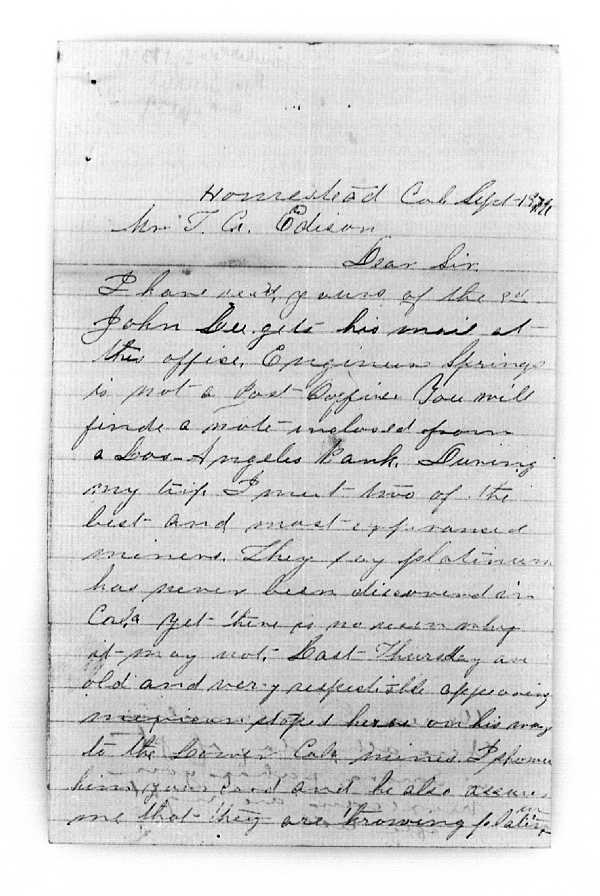 Homestead Cal Sept 1879
Mr T. A. Edison
Dear Sir
I have recd, yours, of the
John Lee gets his mail at
this office, Engineer Springs
is not a Post Office You will
finde a note inclosed from
a Los-Angeles Bank. During
my trip I meet two of the
best and most experanced
miners. They say platinum
has never been discovered in
Cala yet there is no reson why
it may not, Last Thursday an
old and very respectible appearing
mexican stoped here on his way
to the Lower Cala mines. I showe
him your card and he also assures
me that they are throwing platin